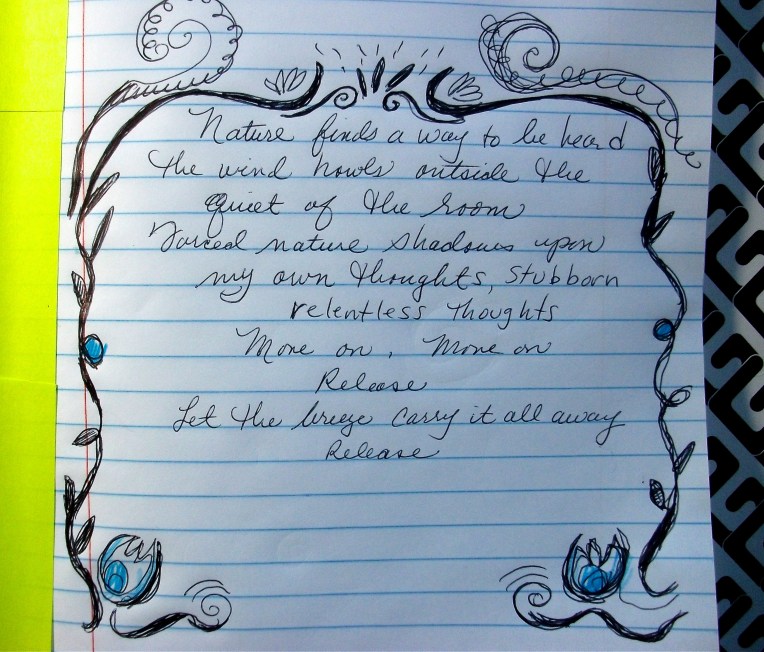 Nature finds a way to be heard
the wind howls outside the
quiet of the room
Forced nature shadows upon
my own thoughts, stubborn
relentless thoughts
Move on, Move on
Release
Let the breeze carry it all away
Release